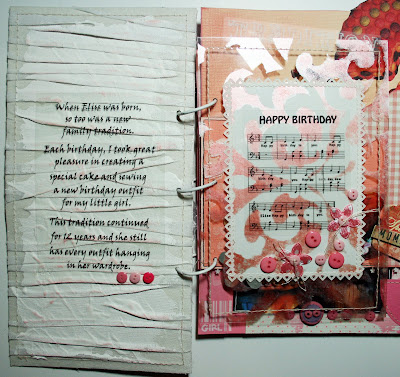 When Elise was born,
so too was a new
family tradition.
Each birthday, I took great
pleasure in creating a
special cake and sewing
a new birthday outfit
for my little girl.
This tradition continued
for 12 years and she still
has every outfit hanging
in her wardrobe.
HAPPY BIRTHDAY
GIRL